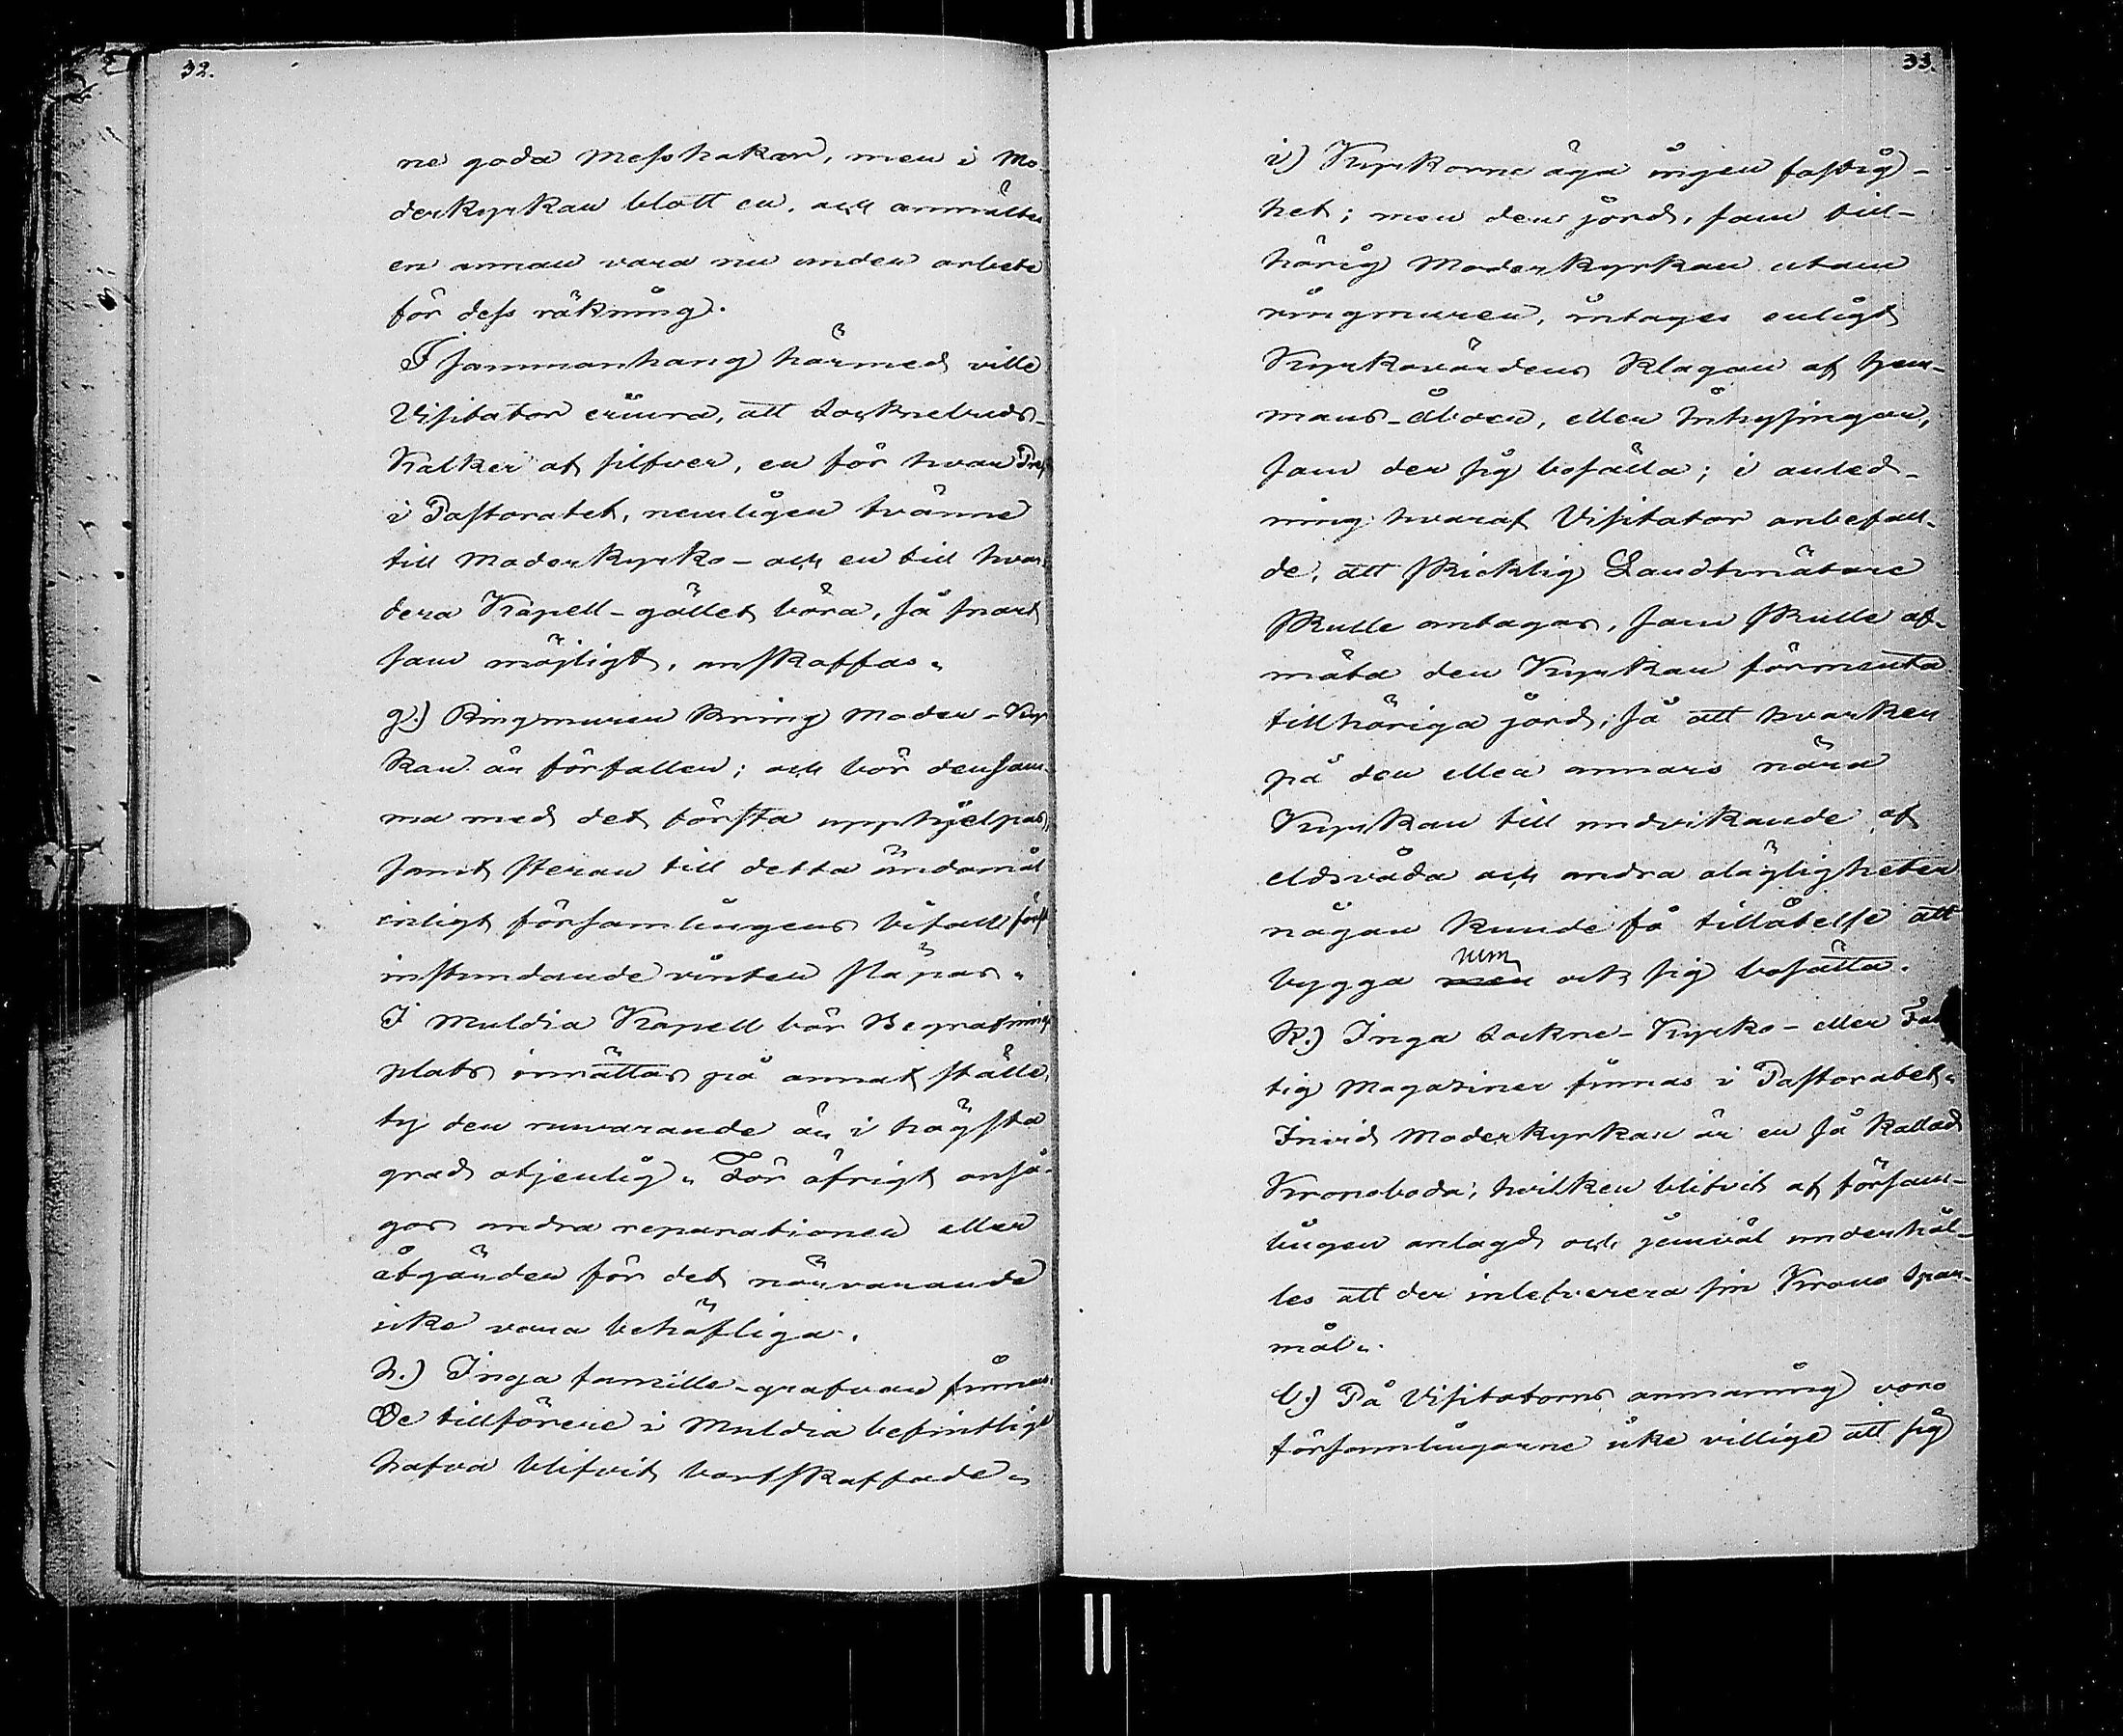 32.
ne goda Messhakar, men i Mo-
derkyrkan blott en, och anmältes
en annan vara nu under arbete
för dess räkning.
I sammanhang härmed ville
Visitator erinra, att Socknebuds-
Kalkar af silfver, en för hvar Präst
i Pastoratet, nemligen tvänne
till Moderkyrko- och en till hvar-
dera Kapell-gället böra, så snart
som möjligt, anskaffas.
g.) Ringmuren kring Moder-Kyr-
kan är förfallen; och bör densam-
ma med det första upphjelpas,
samt stenar till detta ändamål
enligt församlingens bifall först
instundande vinter släpas.
I Muldia Kapell bör Begrafnings
plats inrättas på annat ställe,
ty den nuvarande är i högsta
grad otjenlig. För öfrigt anså-
gos andra reparationer eller
åtgärder för det närvarande
icke vara behöfliga.
h.) Inga famille-grafvar finnas.
De tillförene i Muldia befintliga
hafva blifvit bortskaffade.
33.
i) Kyrkorne äga ingen fastig-
het; men den jord, som till-
hörig Moderkyrkan utom
ringmuren, intages enligt
Kyrkovärdens klagan af hem-
mans-åboer, eller Inhysingar,
som der sig bosätta; i anled-
ning hvaraf Visitator anbefall-
de, att skicklig Landtmätare
skulle antagas, som skulle af-
mäta den Kyrkan förmenta
tillhöriga jord, så att hvarken
på den eller annars nära
Kyrkan till undvikande af
eldsvåda och andra olägligheter
någon kunde få tillåtelse att
bygga men och sig bosätta.
k.) Inga Sockne-Kyrko- eller Fat-
tig Magaziner finnas i Pastoratet.
Invid Moderkyrkan är en så kallad
Kronoboda, hvilken blifvit af försam-
lingen anlagd och jemväl underhål-
les att der inlefverera sin Krono Span-
mål.
l.) På Visitatorns anmaning voro
församlingarne icke villige att sig